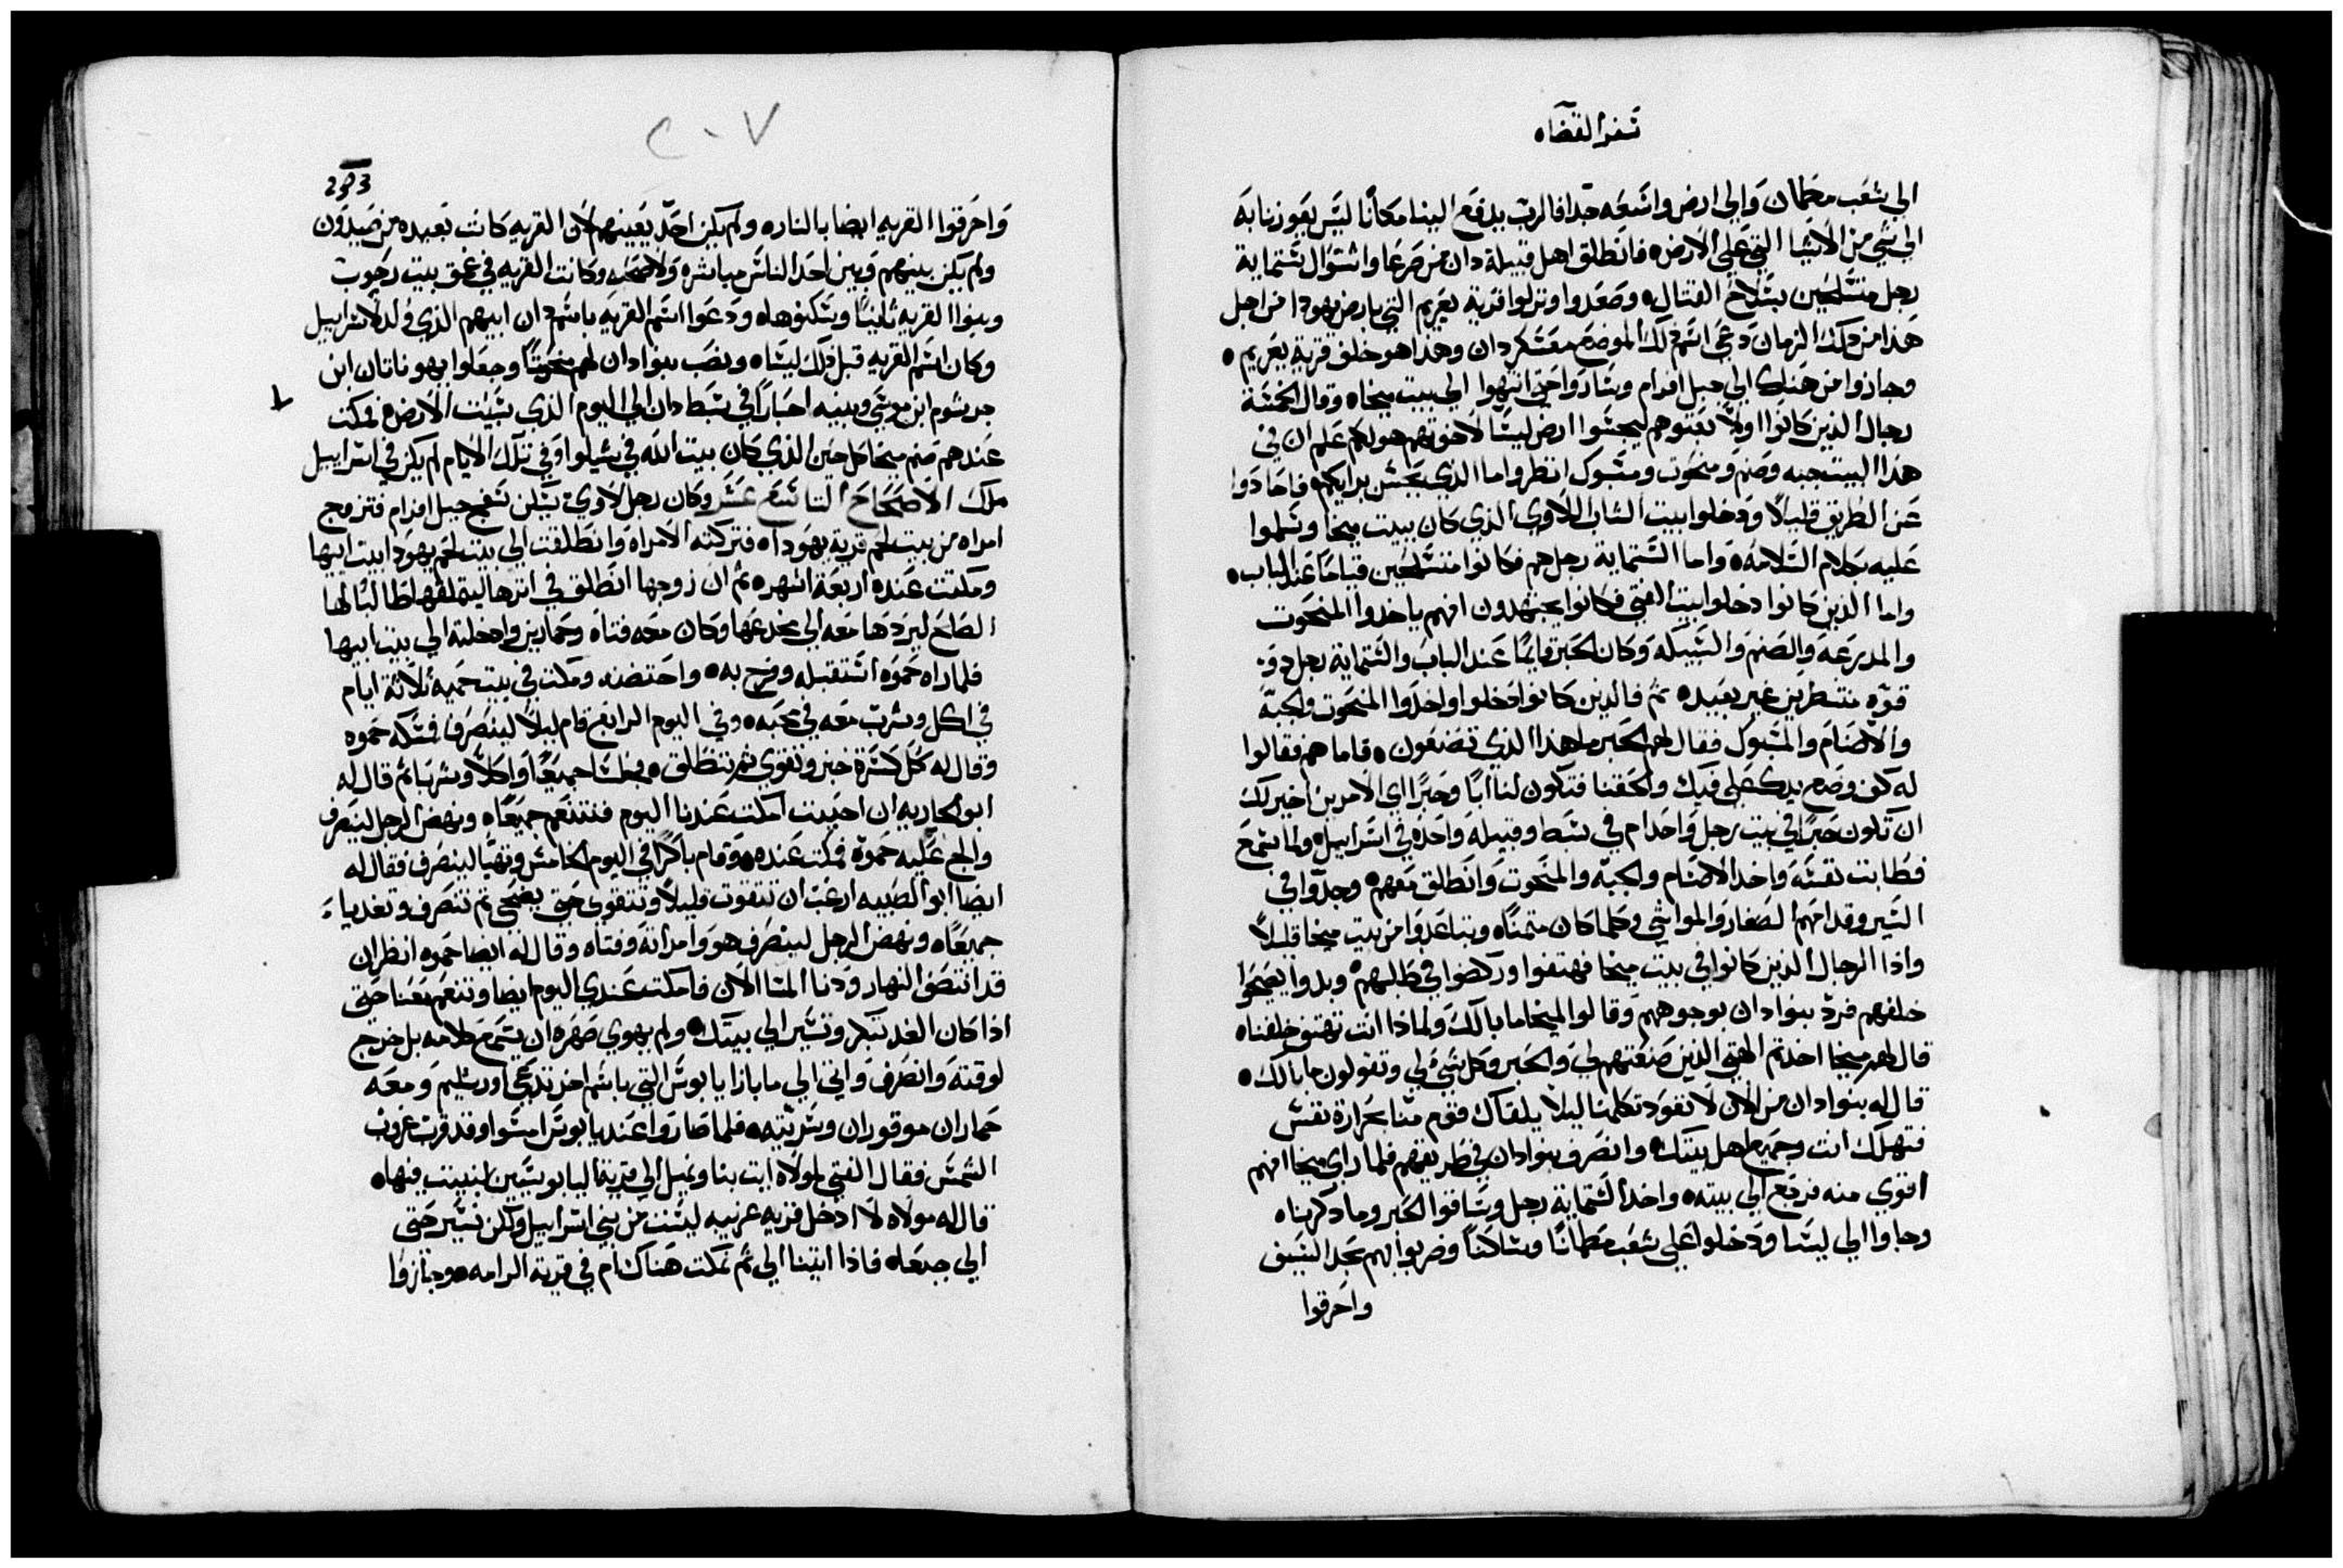 سفر القضاه
الي شعب مطمان وَالي ارض واسَعَه جدا فالربّ يدفع الينا مكانًا ليَس يعَوزنا به
الي شي من الاشيا التي علي الارض فانطلق اهل قبيلة دان من صَرعَا واشتوال ستماية
رجل متسَلحين بسَلاح القتال وصَعَدوا ونزلوا قرية يعَريم التي بارض يهودا من اجل
هَذا من ذلك الزمان دعَي اسَم ذلك الموضع معَسَكر دان وهذا هو خلف قرية يعَريم
وجازوا من هَناك الي جبل افرام وسَاروا حتي انتهوا الي بيت ميخاه وقال الخمسَة
رجال الذين كانوا اولاً بعَتوهم ليجسَوا ارض ليسَا لاخوتهم هو لكم عَلم ان في
هذا البيت جبه وصَنم ومنحوت ومسَبوك انظروا ما الذي يحسَن برايكم فاحَادوا
عَن الطَريق قليلاً ودَخلوا بيت الشاب اللاوي الذي كان ببيت ميخا وسَلموا
عَليه بكلام السَلامه واما السَتماية رجل هم فكانوا متسَلحين قيامًا عَند الباب
واما الذين كانوا دخلوا بيت الفتي فكانوا يجتهدون انهم ياخدوا المنحَوت
والمدرعَه والصَنم والسَبيكه وَكان الحَبر قايمًا عَند الباب والسَتماية رجل دوَ
قوّه منتظرين غير بعَيده ثم فالدين كانوا دَخلوا واخدَوا المنحَوت والجبّه
والاصَنام والمسَبوك فقال لهم الحَبر ما هذا الذي تصَنعَون فاما هم فقالوا
له كف وضَع يدك عَلي فيك والحَقنا فتكون لنا ابًا وحَبرًا اي الامرين اخير لك
ان تكون حَبرًا في بيت رجل وَاحَد ام في سَبط وقبيله وَاحَده في اسَراييل ولما سَمعَ
فطَابت نفسَه وَاخد الاصَنام والجبّه والمنحَوت وَانطَلق معَهم وجدّوا في
السَير وقدامهم الصَغار وَالمواشي وكلما كان متمنًا وتباعَدَوا من بيت ميخا قليلاً
واذا الرجال الذين كانوا في بيت ميخا فهتفوا وركضَوا في طلبهم وبدوا يصَيحَوا
خلفهم فردّ بنوا دان بوجوههم وَقالوا لميخا ما بالك ولماذا انت تهتف خلفنا
قال لهم ميخا اخدتم الهتي الذين صَنعَتهم لي وَالحَبر وكل شي لي وتقولون ما بالك
قال له بنوا دان من الان لا تعَود تكلمنا ليلا يلقاك قوم منّا بحَرارة نفسَ
فتهلك انت وجميَع اهل بيتك وانصَرف بنوا دان في طريقهم فلما راي ميخا انهم
اقوي منه فرجَع الي بيته واخد السَتماية رجل وسَاقوا الحَبر وما دكرناه
وجاوا الي ليسَا ودَخلوا عَلي شعَب مَطمانًا وسَاكنًا وضربوا بهم بحَد السَيف
واحَرقوا
٢٠٧
وَاحَرقوا القريه ايضا بالناره ولم يكن احَدّ يعَينهم لان القريه كانت بعَيده من صَيدون
ولم يكن بينهم وَبين احَد الناسَ مباشره وَلا صَحَبه وكانت القريه في عَمق بيت رحَوب
وبنوا القريه ثانيًا وسَكنوهاه ودَعَوا اسَم القريه باسَم دان ابيهم الذي وُلد لاسَراييل
وكان اسَم القريه قبل ذلك ليسَاه ونصَب بنوا دان لهم منحَوتًا وجعَلوا يهوناتان ابن
جرشوم ابن موسَي وبنيه احَبارًا في سَبط دان الي اليوم الذي سَبيت الارض فمكت
عَندهم صَنم ميخا كل حَين الذي كان بيت الله في شيلوا وَفي تلك الايام لم يكن في اسَراييل
ملك الاصَحَاح التاسَع عَشَر وكان رجل لاوي يسَكن سَفح جبل افرام فتزوج
امراه من بيت لحَم قرية يهوداه فتركته الامراه وَانطَلقت الي بيت لحَم يهَودا بيت ابيها
ومكتت عَنده اربعَة اشهره ثم ان زوجها انطَلق في اثرها ليتملقها طَالبًا لها
الصَلحَ ليردَها معَه الي مخدعَها وَكان معَه فتاه وحَمارين وادخلته الي بيت ابيها
فلما راه حَموَه اسَتقبله وفرح به واحَتضنه ومكت في بيت حَميه ثلاثة ايام
في اكل وشرب معَه في محَبه وفي اليوم الرابع قام ليلاً لينصَرف فمسَكه حَموه
وقال له كُل كسَرة خبز وتقوي ثم تنطلق فجلسَا جميعًا وَاكلاً وشربا ثم قال له
ابو الجاريه ان احَببت امكت عَندنا اليوم فنتنعَم جميعًاه ونهض الرجل لينصَرف
والح عَليه حَموه فمكت عَنده وَقام باكرًا في اليوم الخامسَ وتهيَا لينصَرف فقال له
ايضَا ابو الصَبيه ارغَب ان تتقوت قليلاً وتتقوي حَتي يضَحَي ثم تنصَرف وتغديا
جميعًاه ونهضَ الرجل لينصَرف هو وَامراتهَ وفتاه وقال له ايضا حَموه انظر ان
قد انتصَف النهار وَدنا المسَا الان فامكت عَندي اليوم ايضا وتنعَم معَنا حَتي
اذا كان الغد تبكر وتسَير الي بيتك ولم يهوي صَهره ان يسَمع كلامه بل خرج
لوقته وَانصَرف وَاتي الي ما بازا يابوسَ التي باسَم اخر تدعَي اورشليم وَمعَه
حَماران موقوران وسَريّته فلما صَارَوا عَند يابوسَ امسَوا وقد قرب غروب
الشمسَ فقال الفتي لمولاه ايت بنا ونميل الي قرية اليابوسَيين لنبيت فيهاه
قال له مولاه لا ادخل قريه غريبه ليسَت من بني اسَراييل وَلكن نسَير حَتي
الي جبعَاه فاذا اتينا الي ثم نمكت هَناك ام في قرية الرامه وجازوا